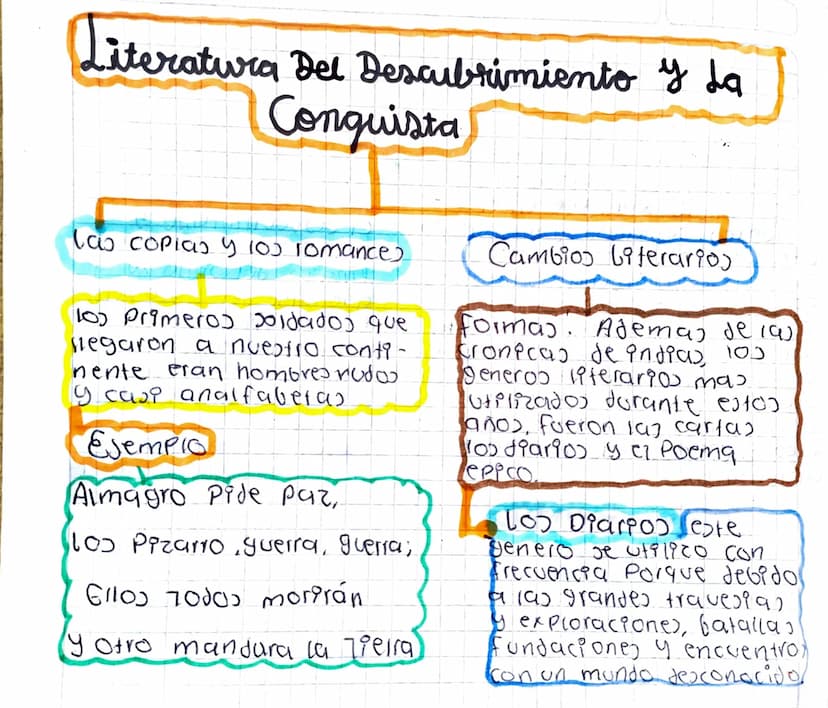 Literatura Del Descubrimiento y La
Conquista
las copias y los romances
los primeros soldados que
llegaron a nuestro conti-
nente eran hombres rudos
y casi analfabetas
Ejemplo
Almagro pide paz,
los Pizarro, guerra, guerra;
Ellos todos morirán
y otro mandara la tierra
Cambios literarios
formas. Ademas de las
cronicas de indias, los
generos literarios mas
utilizados durante estos
años, fueron las cartas
los diarios y el poema
epico.
los Diarios este
genero se utilico con
frecuencia porque debido
a las grandes travesias
y exploraciones, batallas
fundaciones y encuentro
con un mundo desconocido